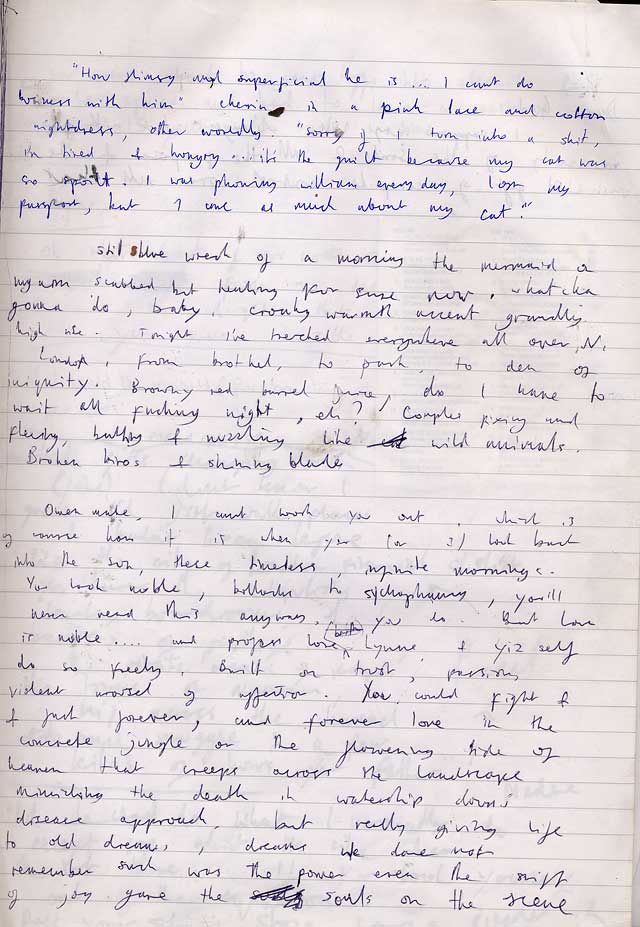 "How flimsy and superficial he is ... I cant do
business with him" in a pink lace and cotton
nightdress, other worldly. "Sorry if I turn into a shit,
im tired & hungry ... its the guilt because my cat was
so spoilt. I was phoning william every day, lost my
passport, but I care as much about my cat."
still blue wreck of a morning the mermaid on
my arm scabbed but healing for sure now. whatcha
gonna do, baby. croaky warmth accent grandly
high use. Tonight I've treched everywhere all over N.
London, from brothel, to park, to den of
iniquity. Browny red barrel juice, do I have to
wait all fucking night, eh? Couples fixing and
fleshy, butting & nuzzling like wild animals.
Broken biros & shining blade
Owen mate, I cant work you out. which is
of course how it is when you (or I) look back
into the sun, these timeless, infinite mornings.
You look noble, bollocks to sycophancy, you'll
never read this anyway, you do. But love
is noble .... and proper love, (both) Lynne & yiz self
do so freely. Built on trust, passion,
violent morsel of affection. You could fight &
& just forever, and forever love in the
concrete jungle or the flowering side of
heaven that creeps across the landscape
mimicking the death in watership downs'
disease approach, but really giving life
to old dreams, dreams we dare not
remember such was the power even the swift
of joy gave the souls on the scene